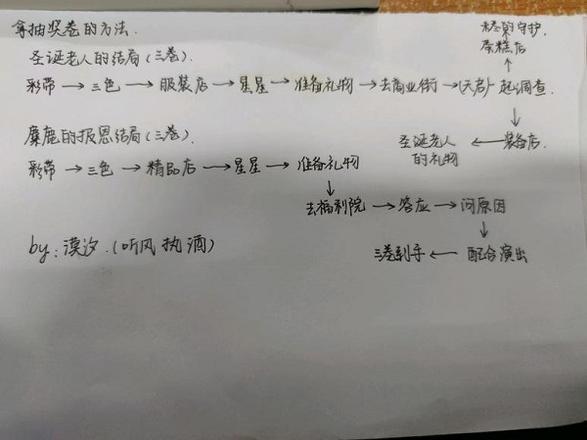 拿抽奖卷的方法.
圣诞老人的结局(三卷).
彩带→三色→服装店→星星→准备礼物→去商业街→(天启)一起调查.
的守护.
蛋糕店
装备店.
圣诞老人的礼物
麋鹿的报恩结局(三卷).
彩带→三色→精品店→星星→准备礼物
去福利院→答应→问原因
三卷到手←配合演出
by:漠汐.(听风执酒)